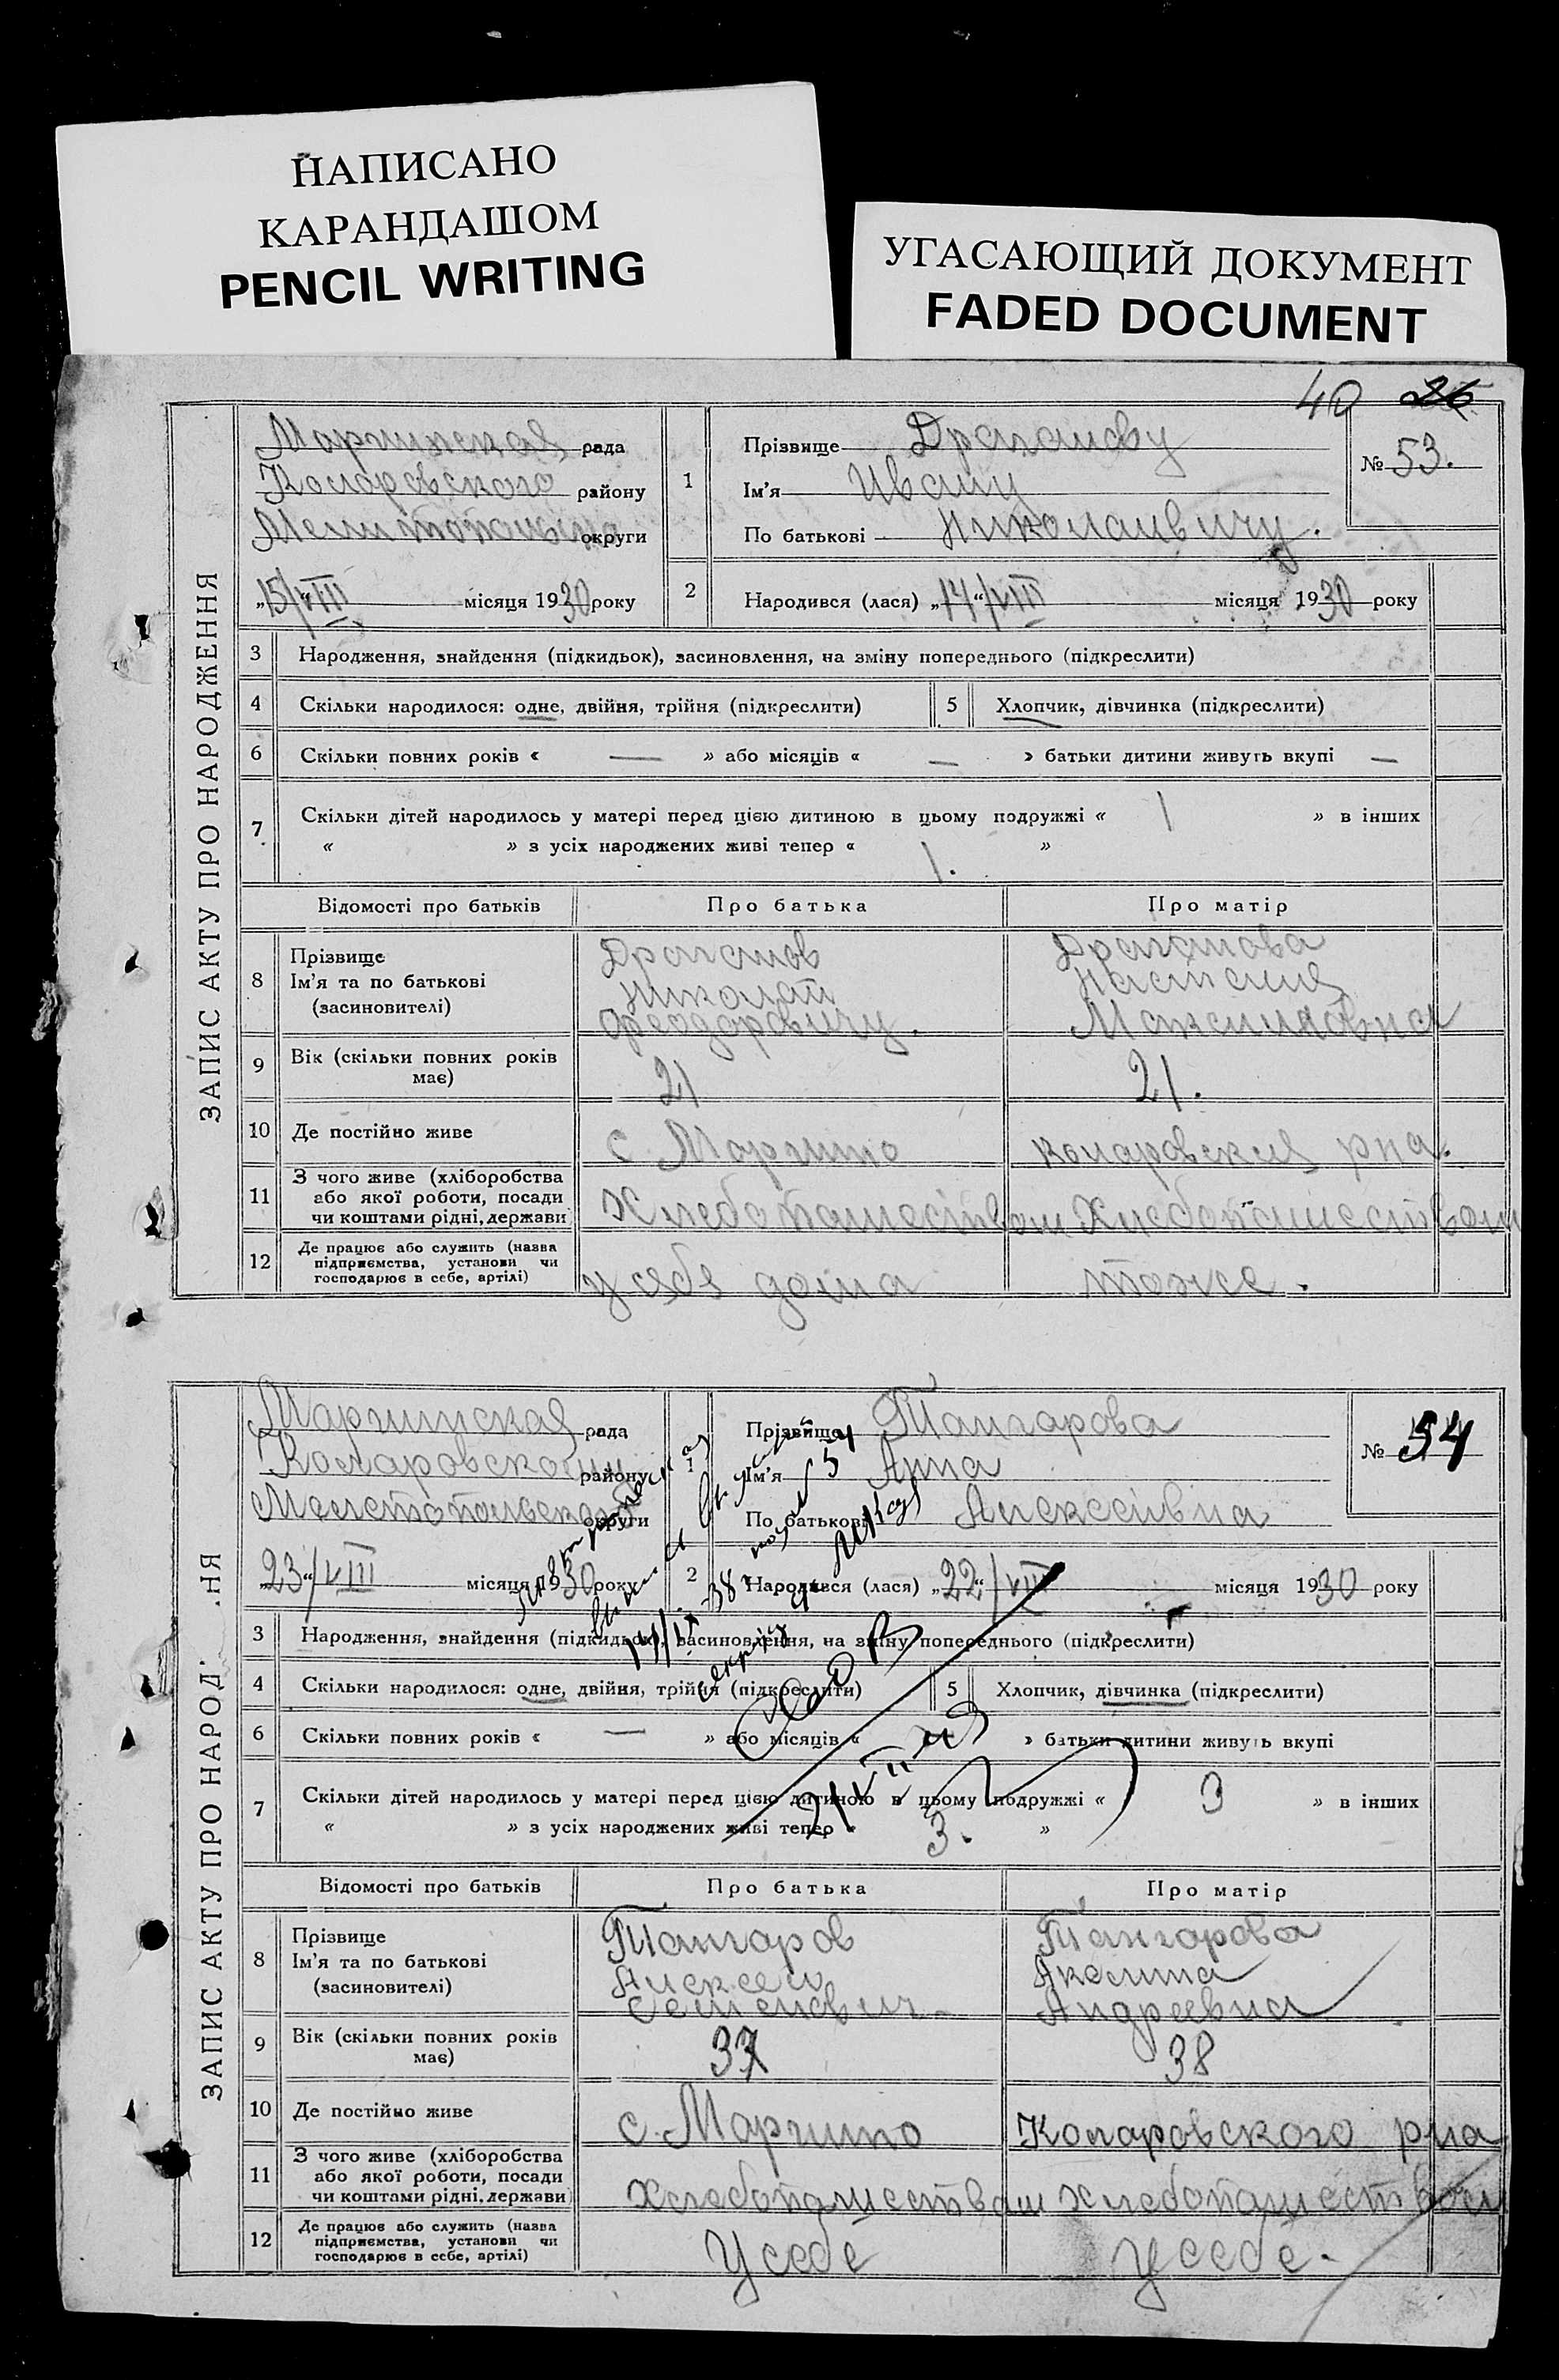 НАПИСАНО
КАРАНДАШОМ
PENCIL WRITING
УГАСАЮЩИЙ ДОКУМЕНТ
FADED DOCUMENT
40 26
ЗАПИС АКТУ ПРО НАРОДЖЕННЯ
Моргинская рада
Коларовского району
округи
„15/„VIII місяця 1930 року
1
Прізвище Драганову
Ім'я Ивану
По батькові Николаевичу.
№ 53.
2 Народився (лася) „14“/VIII місяця 1930 року
3 Народження, знайдення (підкидьок), засиновлення, на зміну попереднього (підкреслити)
4 Скільки народилося: одне, двійня, трійня (підкреслити) 5 Хлопчик, дівчинка (підкреслити)
6 Скільки повних років « — » або місяців « — » батьки дитини живуть вкупі —
7 Скільки дітей народилось у матері перед цією дитиною в цьому подружжі « 1 » в інших
« » з усіх народжених живі тепер « 1. »
Відомості про батьків Про батька Про матір
8 Прізвище Драганов Драганова
Ім'я та по батькові Николай
(засиновителі) Феодоровичу. Максимовна
9 Вік (скільки повних років має) 21 21.
10 Де постійно живе с. Моргино коларовския рна.
11 З чого живе (хліборобства або якої роботи, посади чи коштами рідні, держави) Хлебопашеством Хлебопашеством
12 Де працює або служить (назва підприємства, установи чи господарює в себе, артілі) у себя дома тоже.
ЗАПИС АКТУ ПРО НАРОД .НЯ
Моргинская рада
Коларовского району
Мелетопольской округи
„23“/VIII місяця 1930 року
1
Прізвище Тангарова
Ім'я Анна
По батькові Алексеивна
№ 54
2 Народився (лася) „22“/VIII місяця 1930 року
3 Народження, знайдення (підкидьок), засиновлення, на зміну попереднього (підкреслити)
4 Скільки народилося: одне, двійня, трійня (підкреслити) 5 Хлопчик, дівчинка (підкреслити)
6 Скільки повних років « — » або місяців « » батьки дитини живуть вкупі
7 Скільки дітей народилось у матері перед цією дитиною в цьому подружжі « 3 » в інших
« » з усіх народжених живі тепер « 3. »
Відомості про батьків Про батька Про матір
8 Прізвище Тангаров Тангарова
Ім'я та по батькові Алексей Акелина
(засиновителі) Семенович Андреевна
9 Вік (скільки повних років має) 37 38
10 Де постійно живе с. Моргино Коларовского рна
11 З чого живе (хліборобства або якої роботи, посади чи коштами рідні, держави) Хлебопашеством Хлебопашеством
12 Де працює або служить (назва підприємства, установи чи господарює в себе, артілі) У себе У себе.